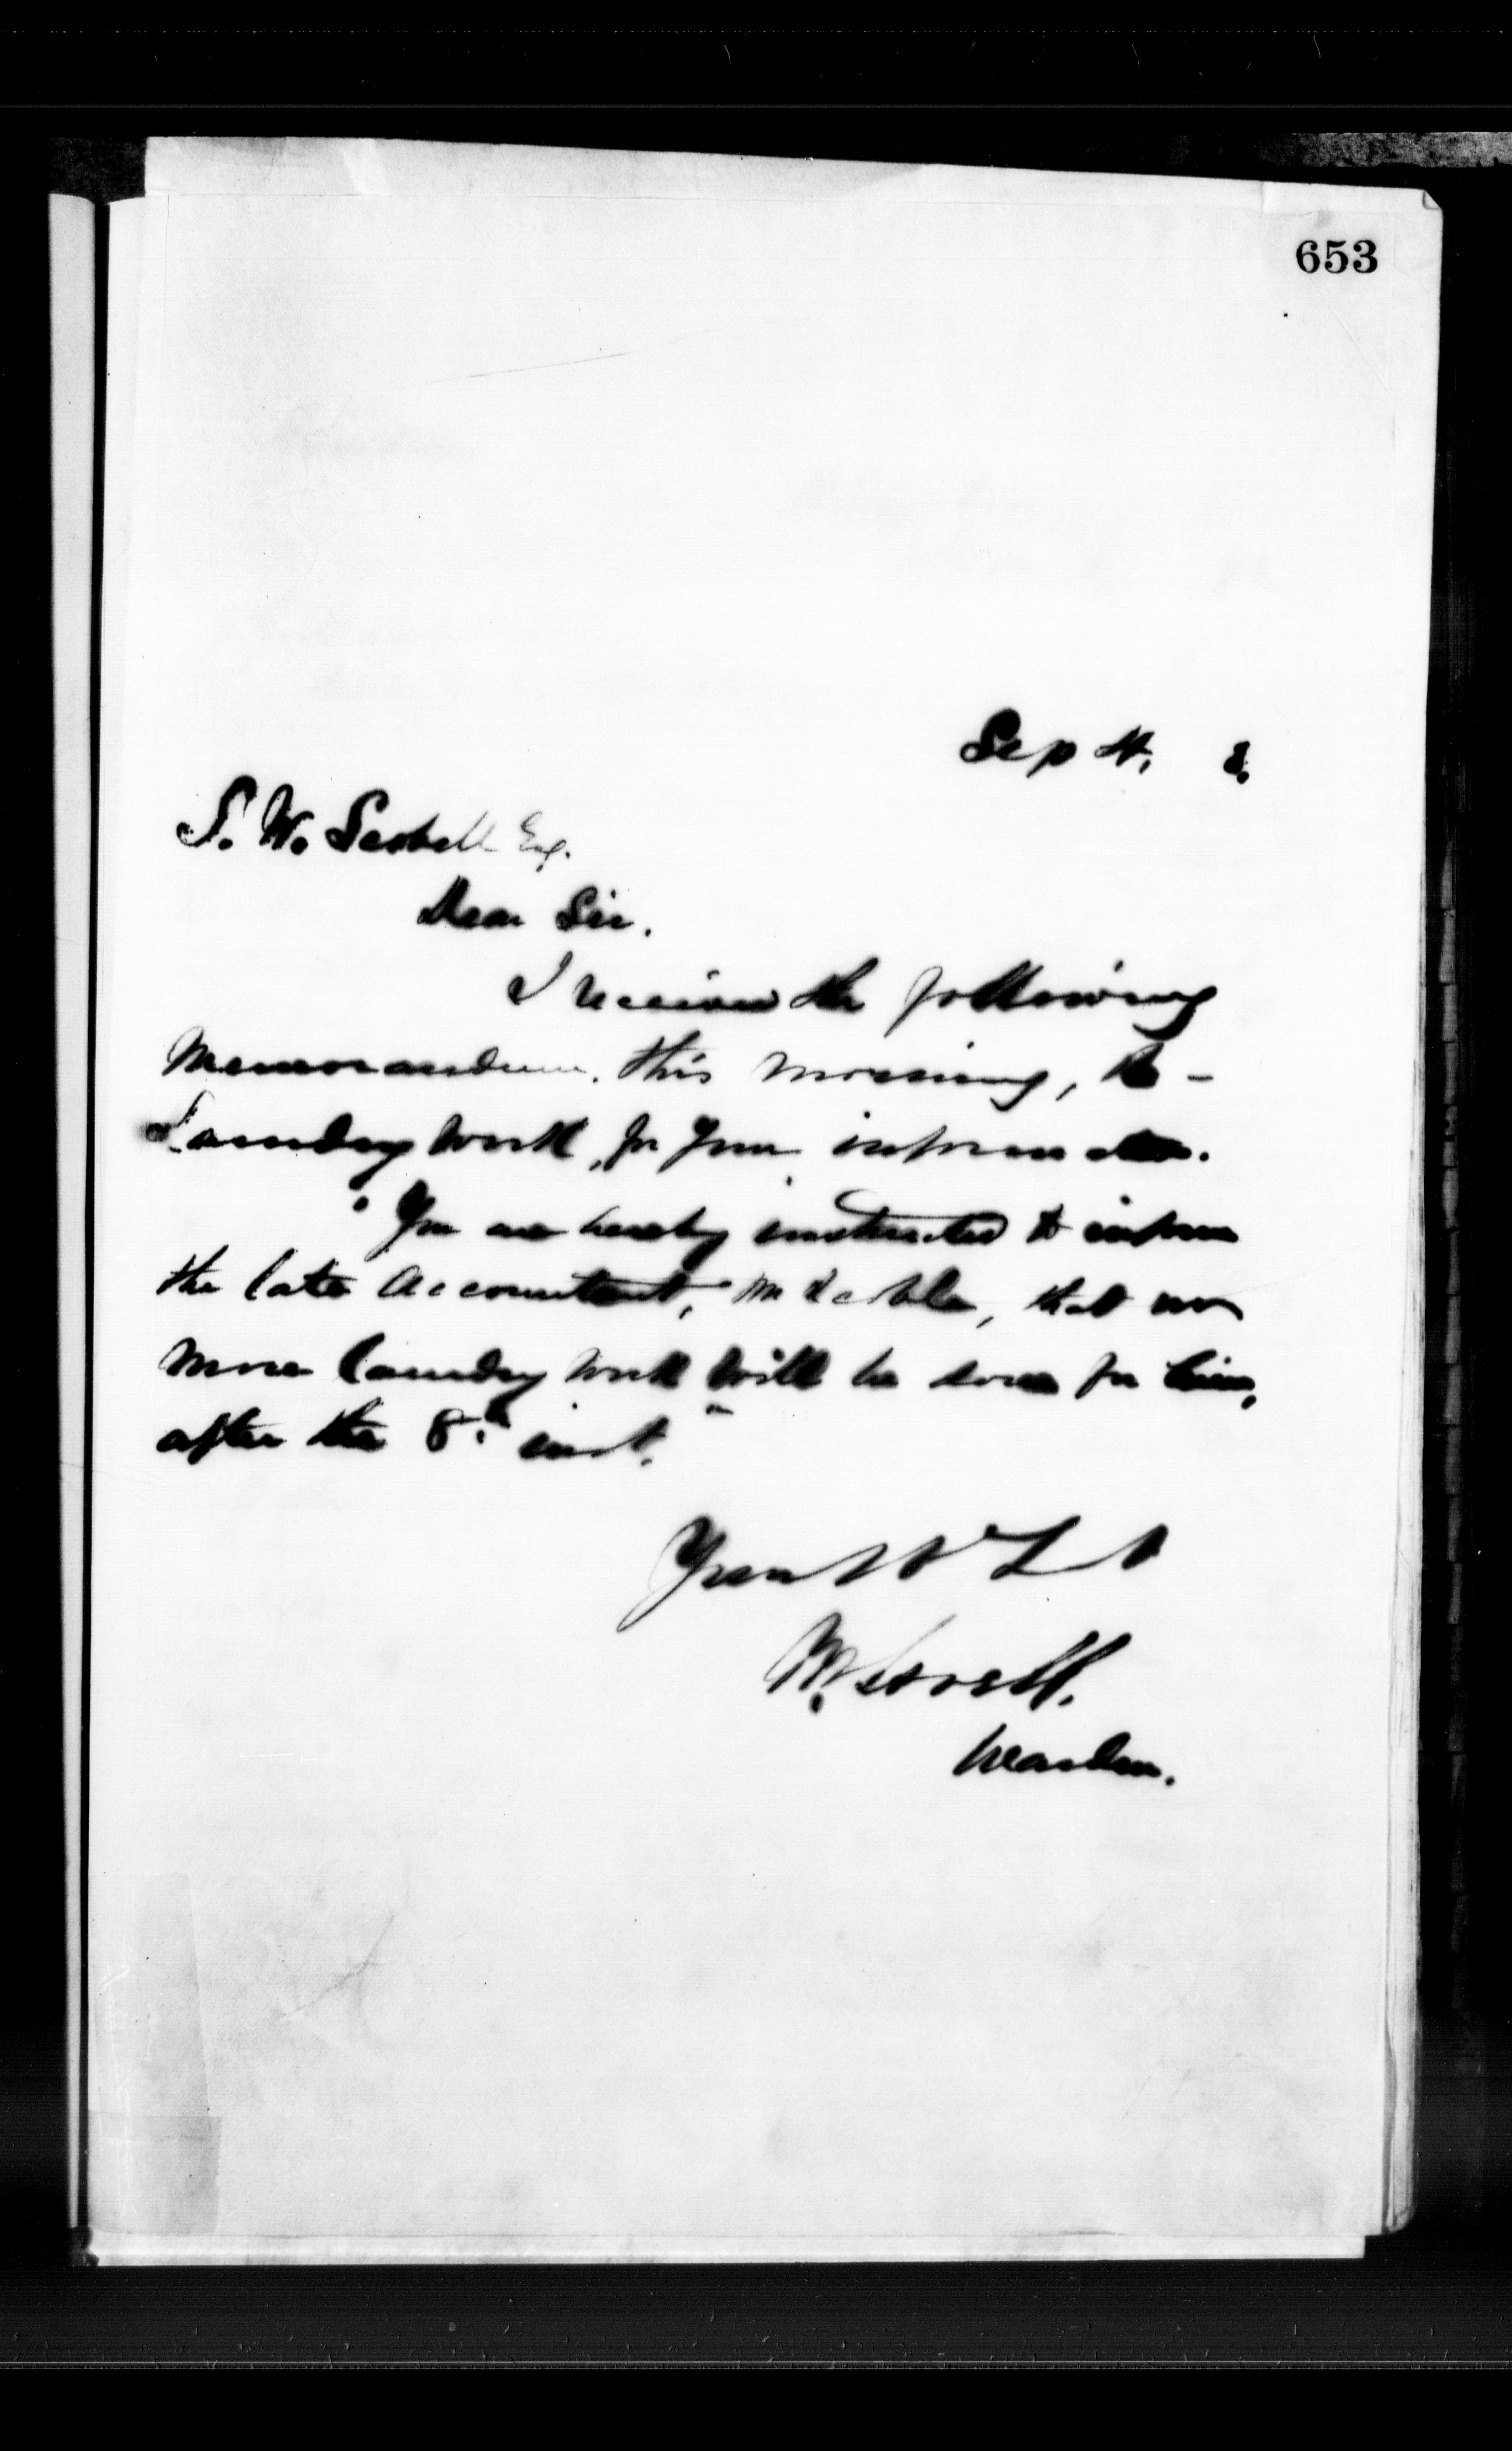 653
Sept. 8.
S. W. Scobell Esq.
Dear Sir.
I received the following
Memorandum this morning, Re -
Laundry work, for your information.
" You are hereby instructed to inform
the late Accountant, Mr Scobell, that no
more laundry work will be done for him,
after the 8th inst. "
Yours
Warden.